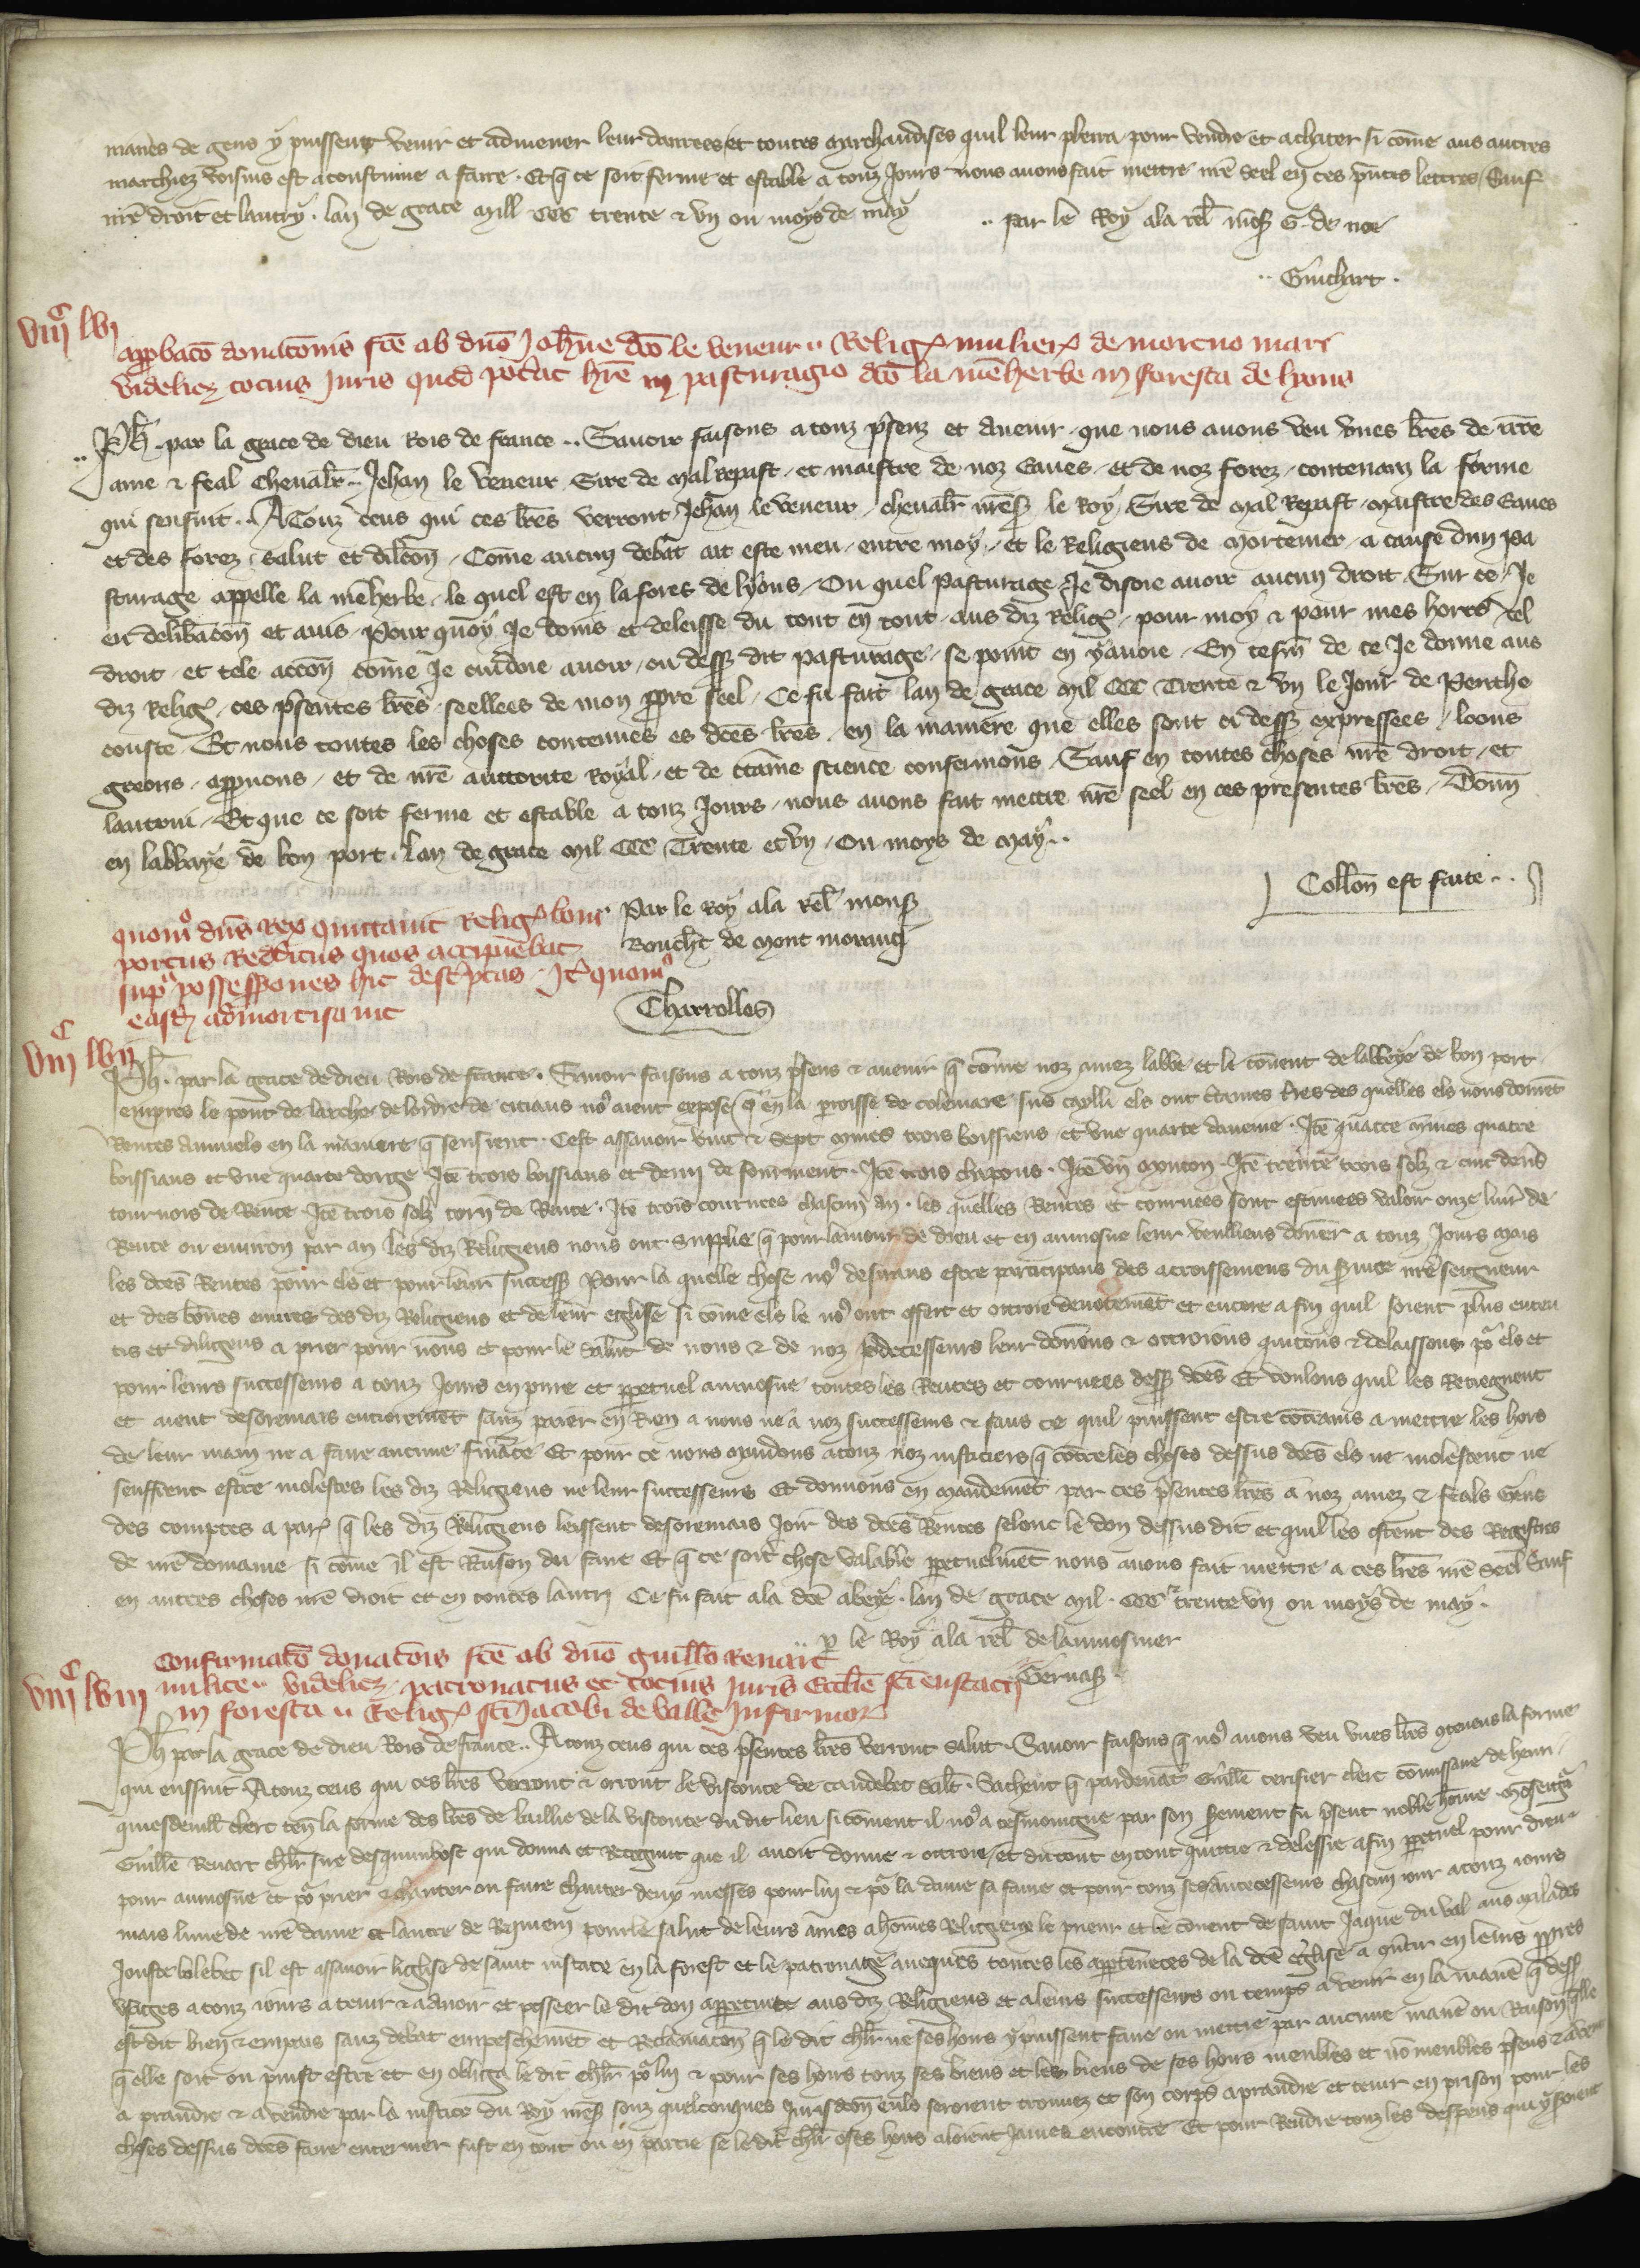 manies de gens y puissent venir et admener leur danrees et toutes marchandises quil leur plerra pour vendre et achater si cōme aus autres
marchiez voisins est acoustume a faire . Et q̄ ce soit ferme et estable a touz jours nous avons fait mettre nr̄e seel en ces p̄ntes lettres / Sauf
nr̄e droit et lautry . lan de grace mill CCC trente & un ou moys de may .. par le Roy a la rel̄ mons̄ G. de noe
.. Guichart .
viijc lvj
app̄bacō donacōnis fc̄e ab dn̄o Joh̄ne dc̄o le veneur .. Reliḡ mulier̄ de mortuo mari
videlicz̄ tocius Juris quod pot̄at hr̄e in pasturagio dc̄o la mēherbe in foresta de lyons
.. Ph̄ . par la grace de dieu Rois de france .. Savoir faisons a touz p̄senz et avenir que nous avons veu unes lr̄es de nr̄e
ame & feal chevalr̄ .. Jehan le veneur Sire de Mal repast . et maistre de noz Eaues . et de noz forez . contenanz la forme
qui sensuit .. A Touz ceus qui ces lr̄es verront Jehan le veneur chevalr̄ nr̄es̄ le Roy Sire de Mal Repast . maistre des Eaues
et des forez . salut et dilc̄on . Come aucun debat ait este meu . entre moy . et le Religieus de mortemer . a cause dun pa
sturage appelle la mēherbe . le quel est en la fores de lyons . Ou quel pasturage Je disoie avoir aucun droit . Sur ce . Je
eu delib̄acōn et avis . Pour quoy Je donis et deleisse du tout en tout . aus diz Reliḡ . pour moy & pour mes hoirs tel
droit . et tele accōn come Je cuidoie avoir . ou dess̄ dit pasturage . se point en y avoie . En tesm̄ de ce Je donne aus
diz Reliḡ . ces p̄sentes lr̄es seellees de mon ppre seel . Ce fu fait lan de grace mil CCC Trente & un le Jour de Penthe
couste . Et nous toutes les choses contenues es dc̄es lr̄es . en la maniere que elles sont ci dess̄ expressees . loons
greons . appvons . et de nr̄e auttorite Royal . et de c̄taine science confermons . Sauf en toutes choses nr̄e droit . et
lautrui . Et que ce soit ferme et estable a touz Jours . nous avons fait mettre nr̄e seel en ces presentes lr̄es . Donn̄
en labbaye de bon port . Lan de grace mil CCC Trente et un . Ou moys de May ..
Coll̄on est faite ..
Par le Roy a la rel̄ mons̄
Bouch̄t de Mont moranci
Charrolles
quom̊ dn̄s rex quittavit Reliḡ boni
portus Redditus quos accipiebat
sup̄ possessiones hic desc̄ptas . It̄ quom̊
easd̄ admortisavit
viijc lvij
Ph̄ . par la grace de dieu Rois de france . Savoir faisons a touz p̄sens & avenir q̄ cōme noz amez labbe et le cōvent de labbeye de bon port
empres le pont de larche de lordre de citiaus no᷒ aient expose q̄ en la parroisse de colemare suꝰ cailli els ont c̄taines t̄res des quelles els nous doivēt
Rentes annuels en la maniere q̄ sensient . Cest assavoir vint & sept mines trois boissiens et une quarte daveine . Itē quatre mines quatre
boissiaus et une quarte dorge . Itē trois boissiaus et demi de fourment . Itē trois chapons . Itē un mouton . Itē trente trois solz & cinc den̄s
tournois de Rente . Itē trois solz torn̄ de Rente . Itē trois courvees chascun an . les quelles Rentes et courvees sont estimees valoir onze livr̄ de
Rente ou environ par an les diz Religieus nous ont supplie q̄ pour lamour de dieu et en aumosne leur veulliens donner a touz Jours mais
les dc̄es Rentes pour els et pour leurs success̄ Pour la quelle chose no᷒ desirans estre participans des acroissemens du s̄vice nr̄e seigneur
et des bōnes euvres des diz Religieus et de leur eglise si cōme els le no᷒ ont offert et ottroie devotemēt et encore a fin quil soient plus enten
tis et diligens a prier pour nous et pour le salut de nous & de noz p̄decesseurs leur donnons & ottroions quictons & delaissons po᷒ els et
pour leurs successeurs a touz Jours en pure et ppetuel aumosne toutes les Rentes et courvees dess̄ dc̄es Et voulons quil les Retiegnent
et aient desoremais entieremēt sanz paier en Rien a nous ne a noz successeurs & sans ce quil puissent estre cōtrains a mettre les hors
de leur main ne a faire aucune fināce Et pour ce nous mandons a touz noz justiciers q̄ cōtre les choses dessus dc̄es els ne molestent ne
seuffrent estre molestez les diz Religieus ne leur successeurs Et donnons en mandemēt par ces p̄sentes lr̄es a noz amez & feals Gens
des comptes a par̄ q̄ les diz Religieus leissent desoremais Joir des dc̄es Rentes selonc le don dessus dit et quil les ostent des Registres
de nr̄e domaine si cōme il est Raison du faire Et q̄ ce soit chose valable ppetuelmēt nous avons fait mettre a ces lr̄es nr̄e seel Sauf
en autres choses nr̄e droit et en toutes lautrj Ce fu fait a la dc̄e abeye . lan de grace mil . CCC trente un ou moys de may .
.. p̄ le Roy a la rel̄ de laumosnier
Gervas̄ .
viijc lviij
Confirmacō donacōis fc̄e ab dn̄o guill̄o Renart
milite .. videlicz̄ . patronatus et tocius Juris Eccl̄ie sc̄i eustacii
in foresta .. Reliḡ sc̄i Jacobi de valle Infirmor̄
Ph̄ par la grace de dieu Rois de france .. A touz ceus qui ces p̄sentes lr̄es verront salut . Savoir faisons q̄ no᷒ avons veu unes lr̄es 9tenens la forme
qui ensuit . A touz ceus qui ces lr̄es verront & orront le visconte de caudebec salt̄ . Sachent q̄ par devāt Guill̄e cerisier clerc commissaire de henri
quiesdeville clerc ten̄ la forme des lr̄es de baillie de la visconte du dit lieu si cōment il no᷒ a tesmoingne par son s̄ement fu p̄sent noble hōme . Moseign̄
Guill̄e Renart chl̄r sire desquimbosc qui donna et Recognut que il avoit donne & ottroie et du tout en tout quictie & delessie a fin ppetuel pour dieu
pour aumosne et po᷒ prier & chanter ou faire chanter deux messes pour lui & po᷒ la dame sa fame et pour touz ses ancesseurs chascun jour a touz jours
mais lune de nr̄e dame et lautre de Requiem pour le salut de leurs ames a hōmes Religieux le prieur et le cōvent de saint Jaque du val aus malades
Jouste bolebec sil est assavoir leglise de saint wistace en la forest et le patronage avecques toutes les appteneces de la dc̄e eglise a 9vtir en leurs ppres
usages a touz jours a tenir & a avoir et posseer le dit don aus diz Religieus et a leurs successeurs ou temps a venir en la manie q̄ dess̄
est dit bien & empais sanz debat empeschemēt et Reclamacōn q̄ le dit chl̄r ne ses hoirs y puissent faire ou mettre par aucune manie ou Raison q̄lle
q̄ elle soit ou puist estre et en obliga le dit chl̄r po᷒ lui & pour ses hoirs touz ses biens et les biens de ses hoirs meubles et nō meubles p̄sens & avenir
a prandre & a vendre par la justice du Roy nr̄es̄ souz quelconques Jurisdicōn euls seroient trouvez et son corps a prandre et tenir en prison pour les
choses dessus dc̄es faire enteriner fust en tout ou en partie se le dit chl̄r ou ses hoirs aloient James encontre Et pour Rendre touz les despens qui y seroient